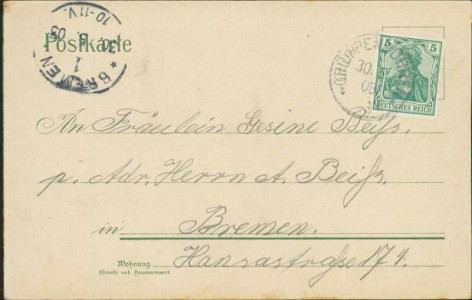 Postkarte
BREMEN
1
30. 5. 03
10-11V.
30.
5 5
DEUTSCHES REICH
An Fräulein Gesine Beiß.
p. Adr. Herrn A. Beiß.
in Bremen.
Wohnung
(Straße und Hausnummer)
Hansastraße 174.